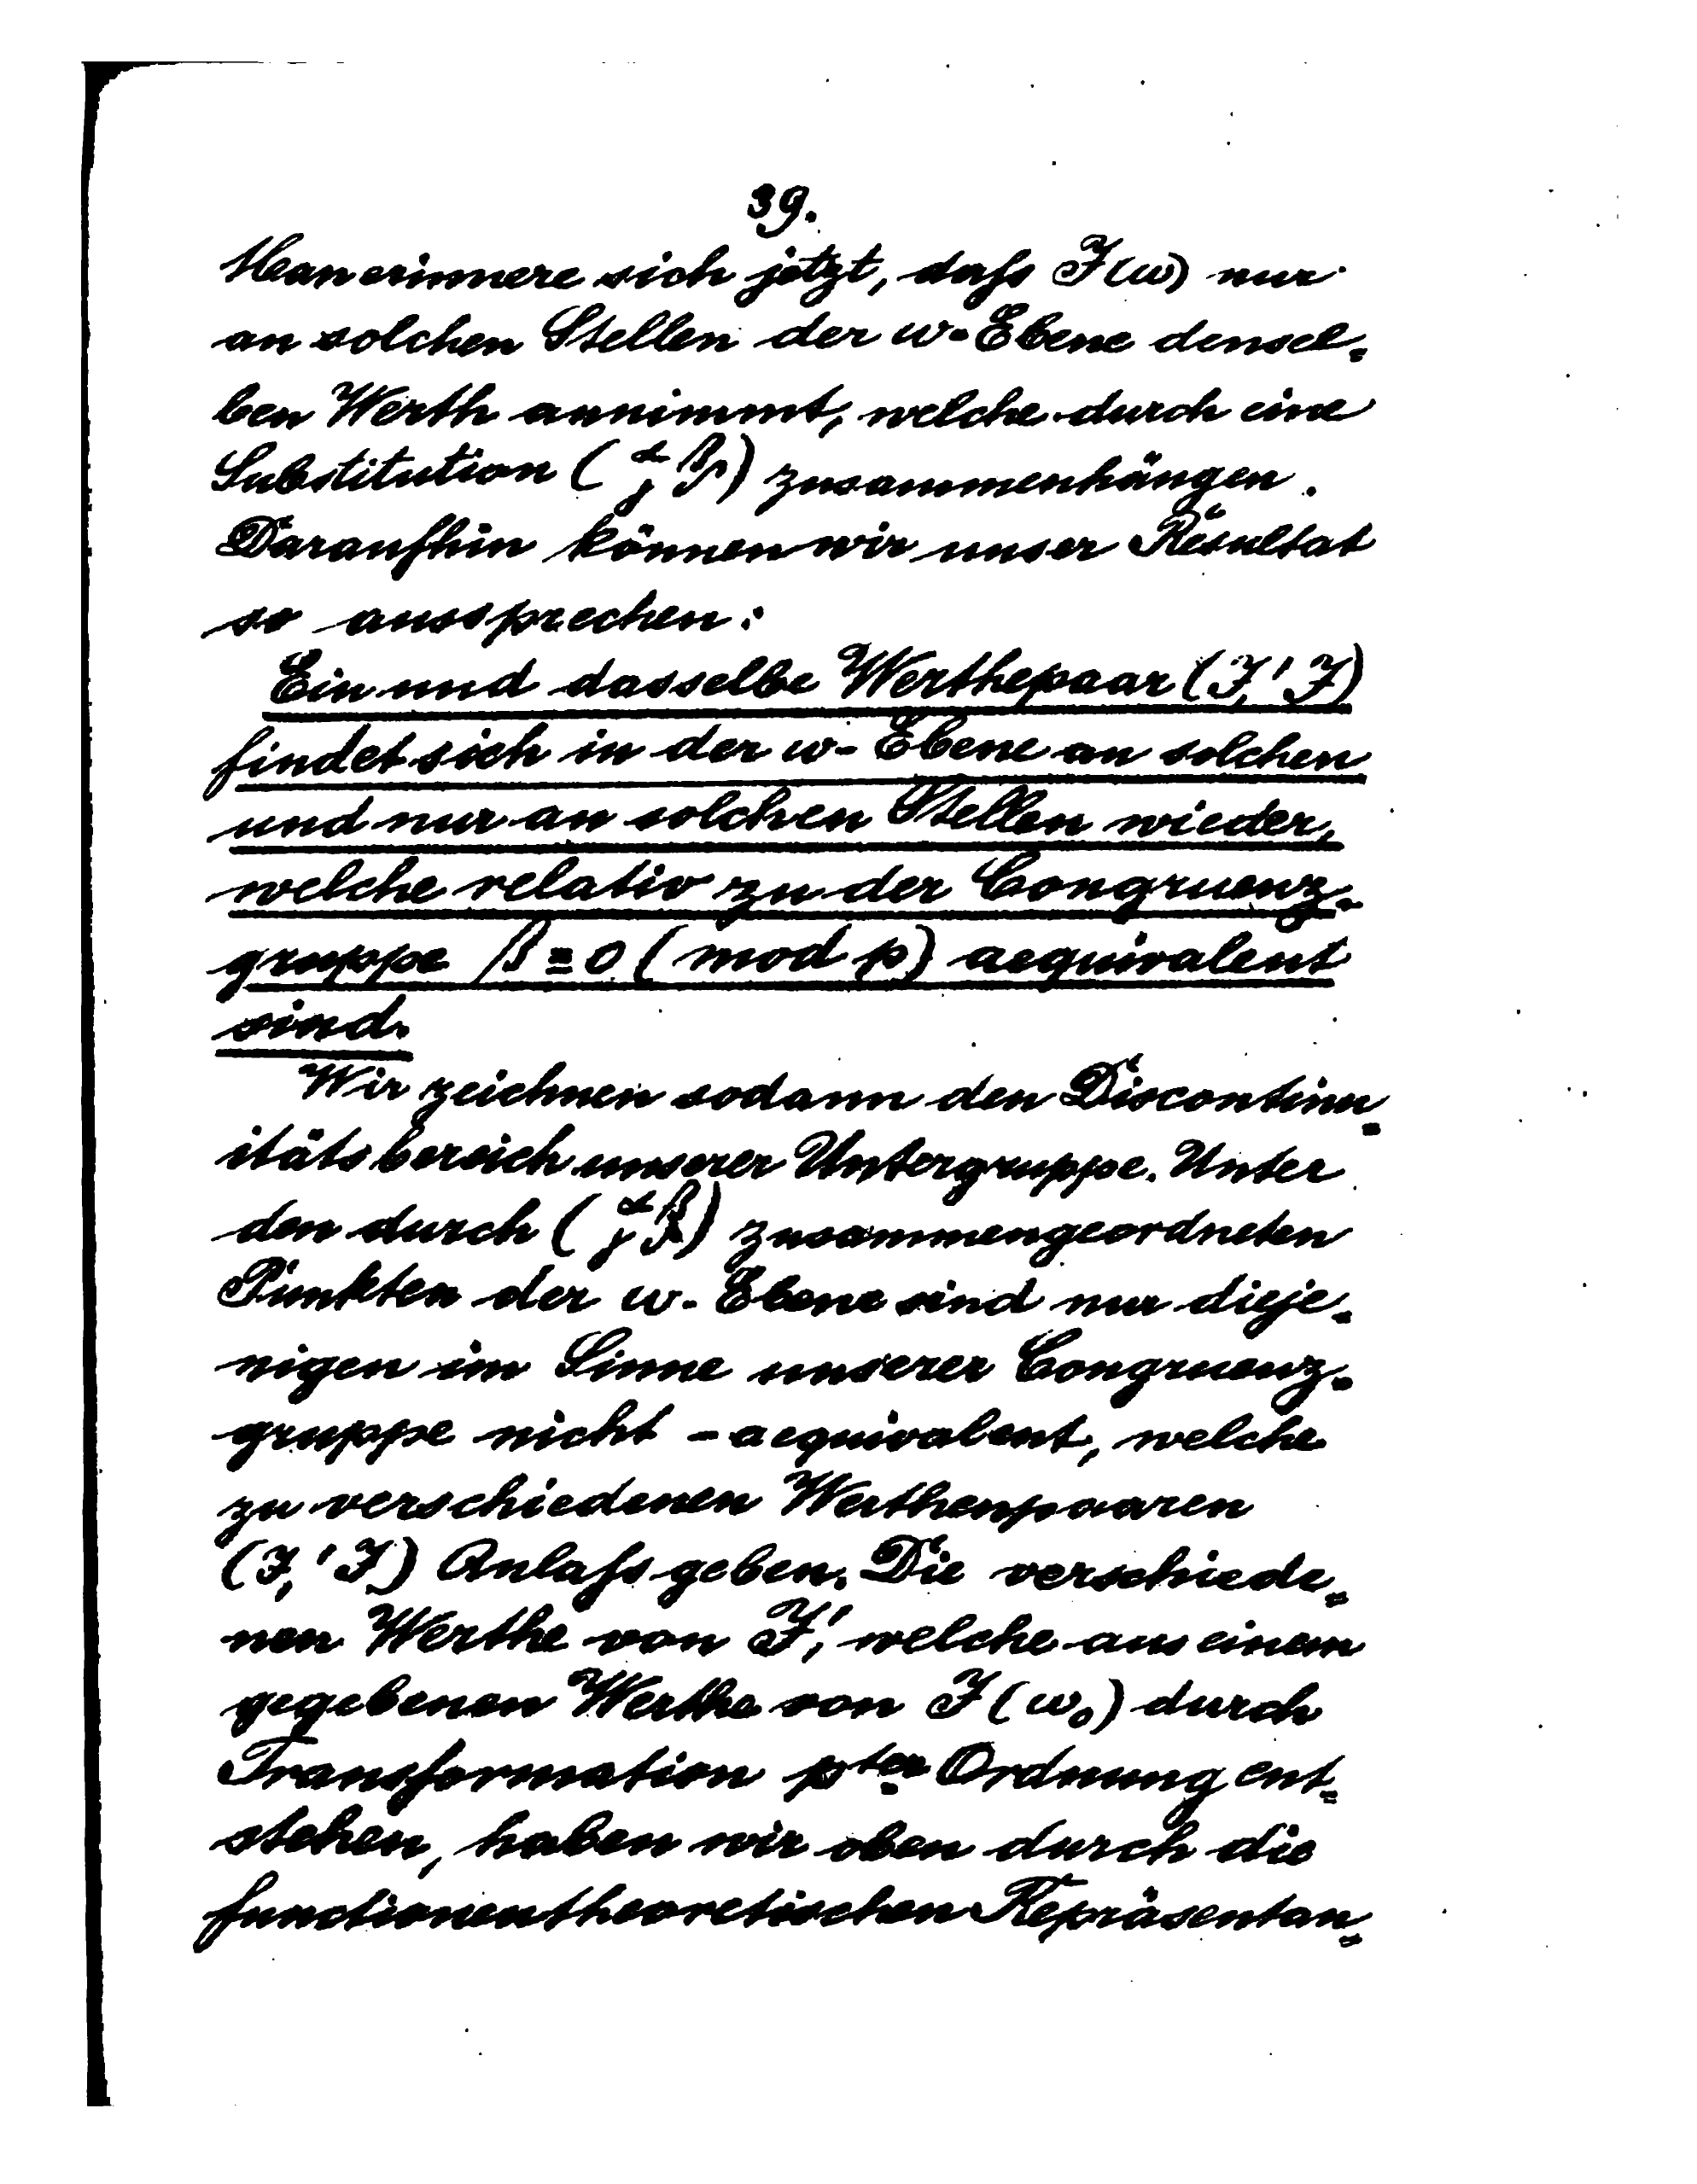 39.
Man erinnere sich jetzt, daſs J(ω) nur
an solchen Stellen der ω-Ebene densel-
ben Werth annimmt, welche durch eine
Substitution (α β γ δ) zusammenhängen.
Daraufhin können wir unser Resultat
so aussprechen:
Ein und dasselbe Werthepaar (J,' J)
findet sich in der ω-Ebene an solchen
und nur an solchen Stellen wieder,
welche relativ zu der Congruenz-
gruppe β≡0 (mod p) aequivalent
sind.
Wir zeichnen sodann den Discontinu-
itätsbereich unserer Untergruppe. Unter
den durch (α β γ δ) zusammengeordneten
Punkten der ω-Ebene sind nur dieje-
nigen im Sinne unserer Congruenz-
gruppe nicht-aequivalent, welche
zu verschiedenen Werthenpaaren
(J,' J) Anlaſs geben. Die verschiede-
nen Werthe von J,' welche aus einem
gegebenen Werthe von J(ω₀) durch
Transformation pter Ordnung ent-
stehen, haben wir oben durch die
functionentheoretischen Repräsentan-